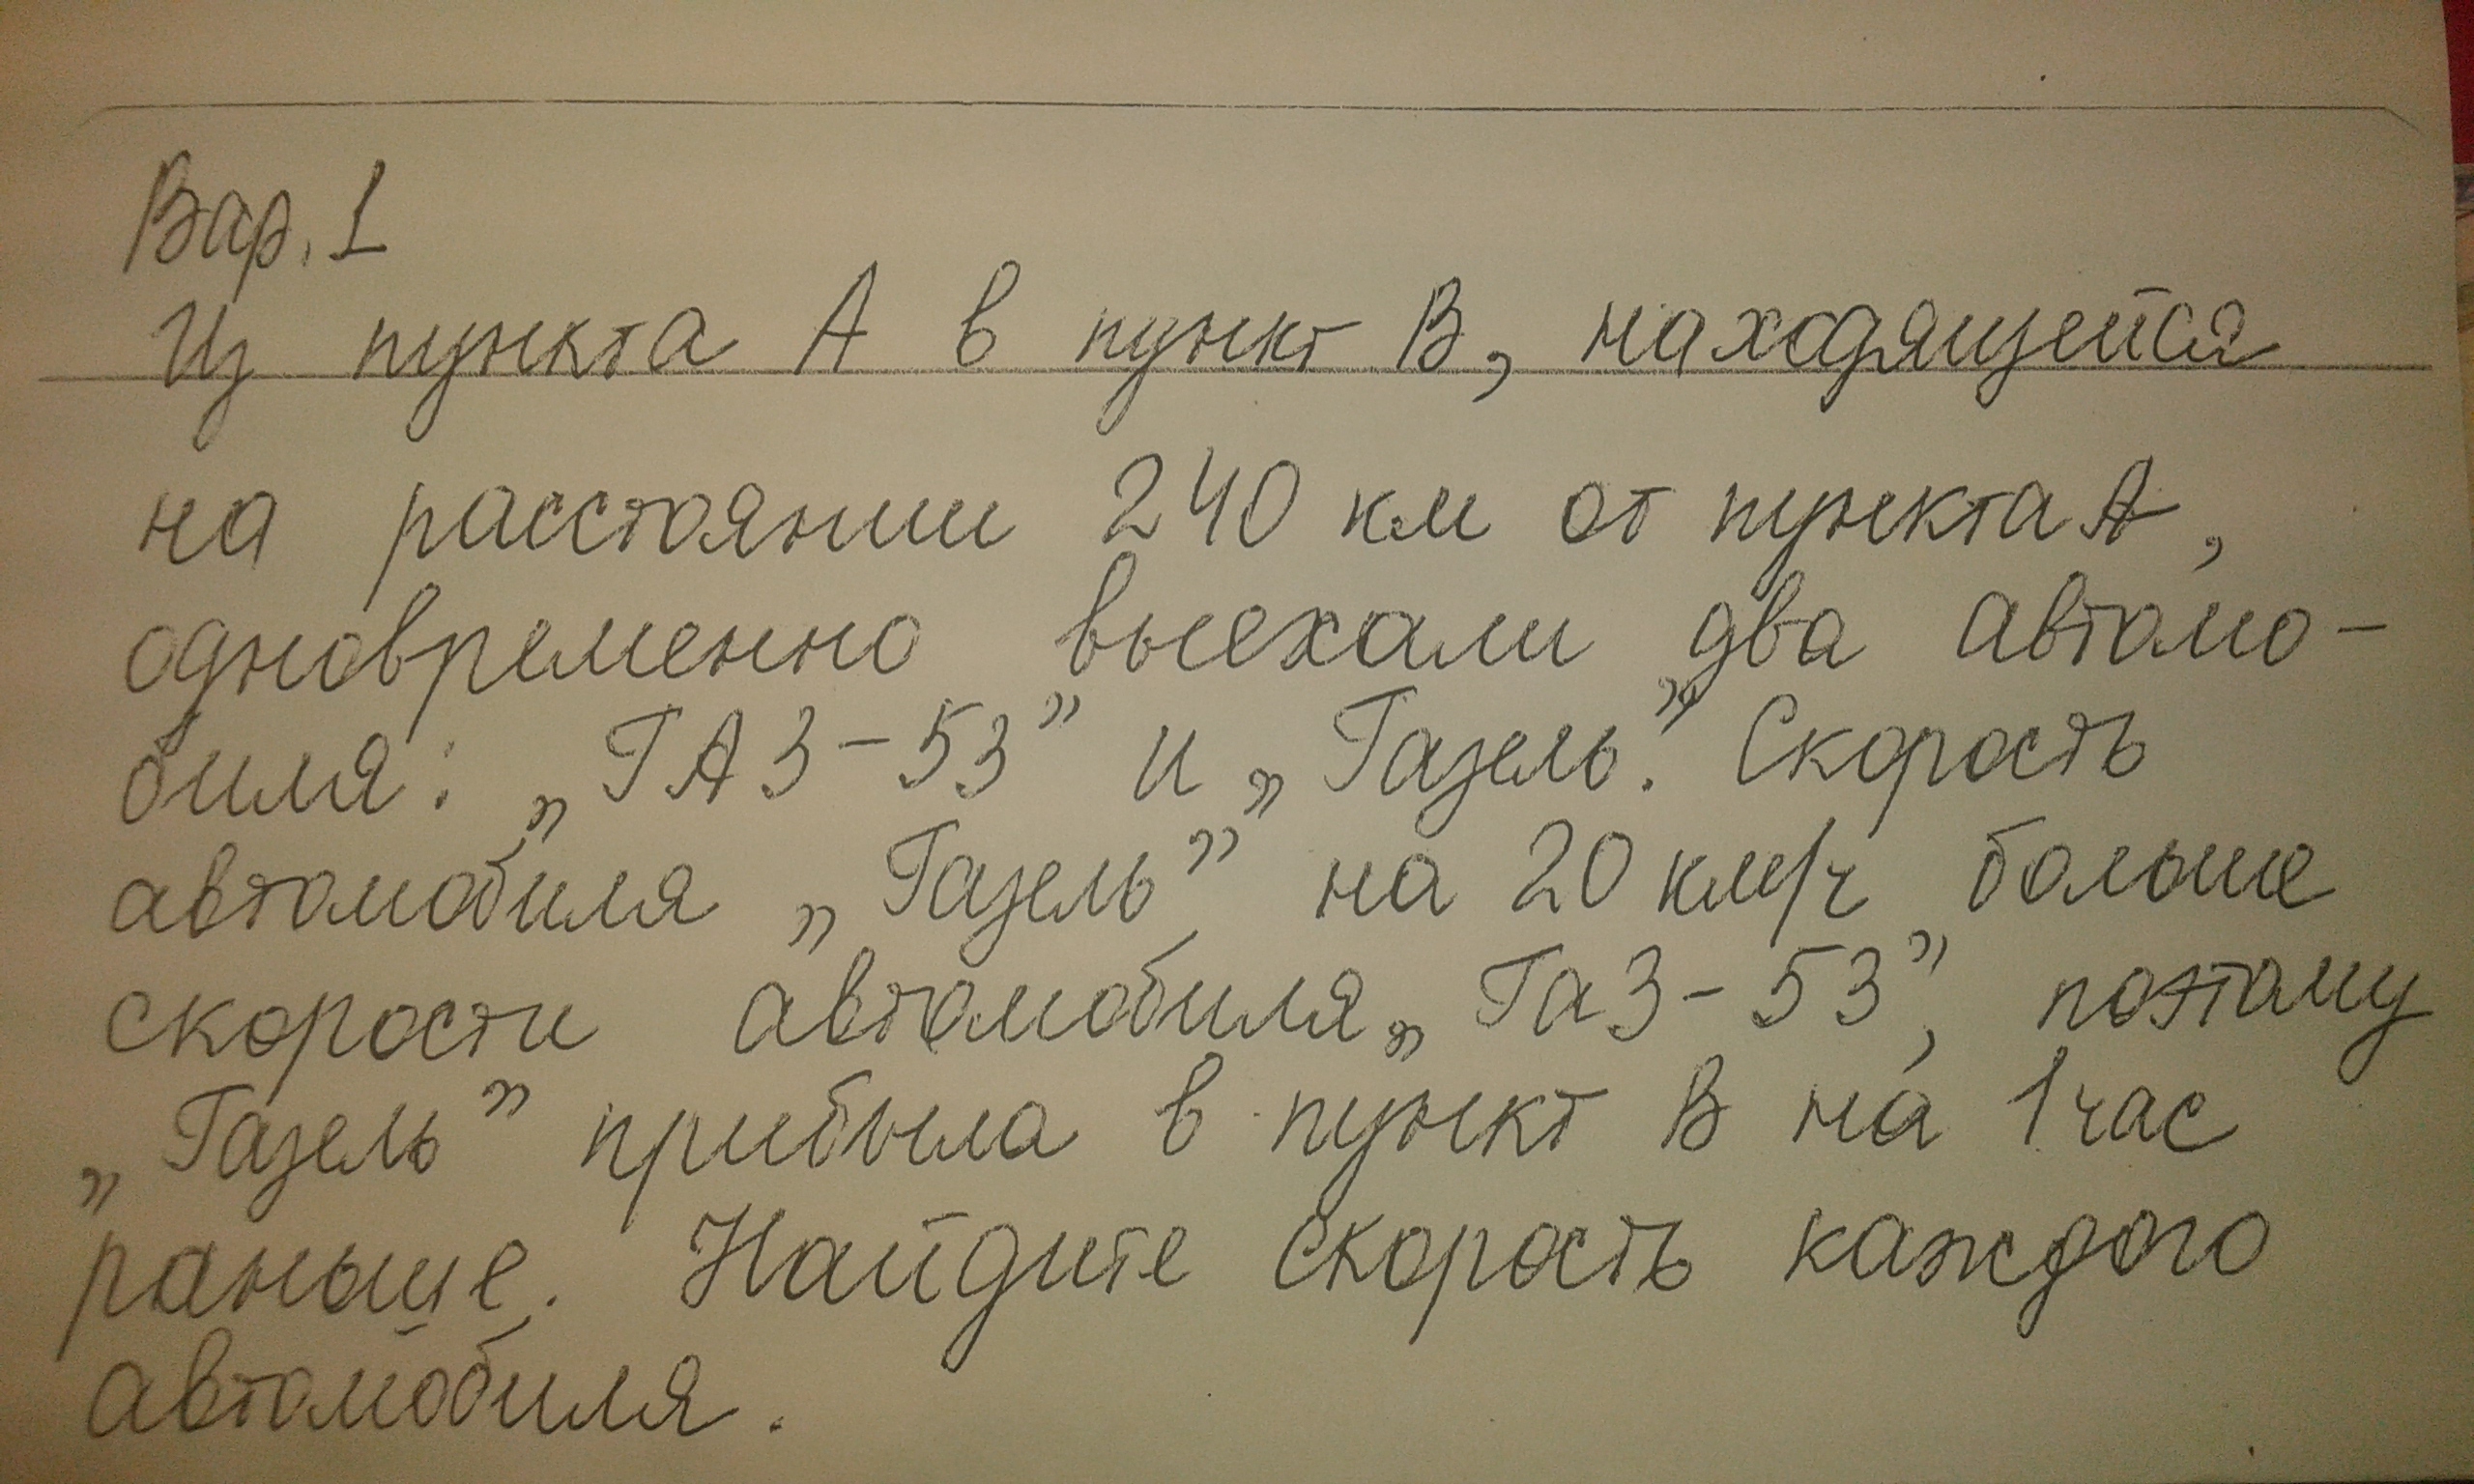 Вар. 1
Из пункта А в пункт В, находящейся
на расстоянии 240 км от пункта А,
одновременно выехали два автомо-
биля: „ГАЗ-53” и „Газель”. Скорость
автомобиля „Газель” на 20 км/ч больше
скорости автомобиля „ГаЗ-53”, поэтому
„Газель” прибыла в пункт В на 1 час
раньше. Найдите скорость каждого
автомобиля.